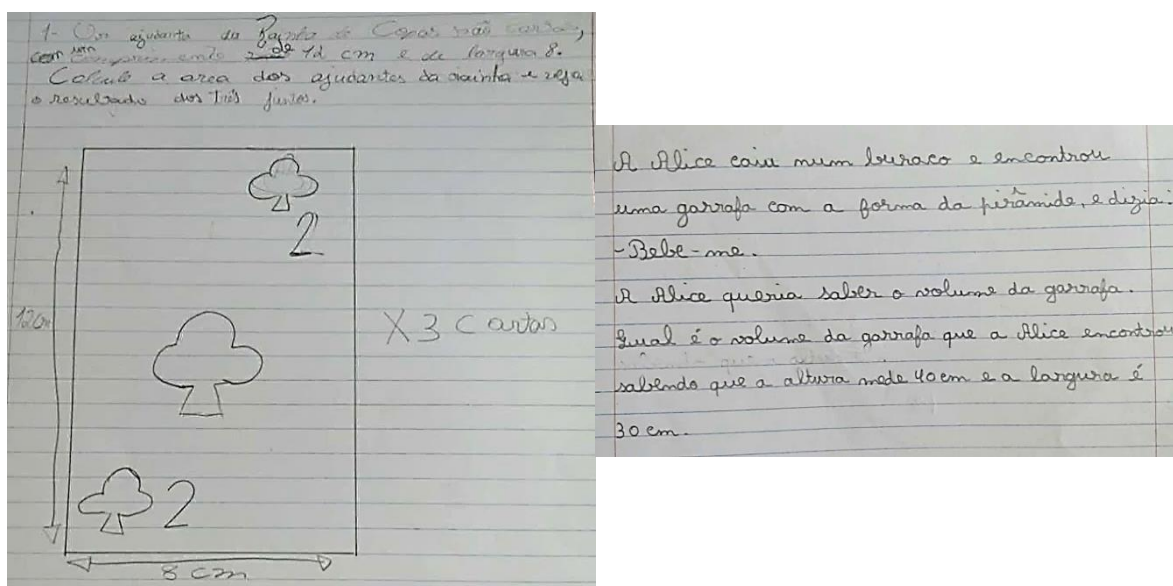 1- Os ajudantes da Rainha de Copas são cartas,
com um comprimento de 12 cm e de largura 8.
Calcule a area dos ajudantes da rainha e veja
o resultado dos três juntos.
2
12cm
X3 cartas
2
8 cm
A Alice caiu num buraco e encontrou
uma garrafa com a forma da pirâmide, e dizia:
-Bebe-me.
A Alice queria saber o volume da garrafa.
Qual é o volume da garrafa que a Alice encontrou
sabendo que a altura mede 40 cm e a largura é
30 cm.